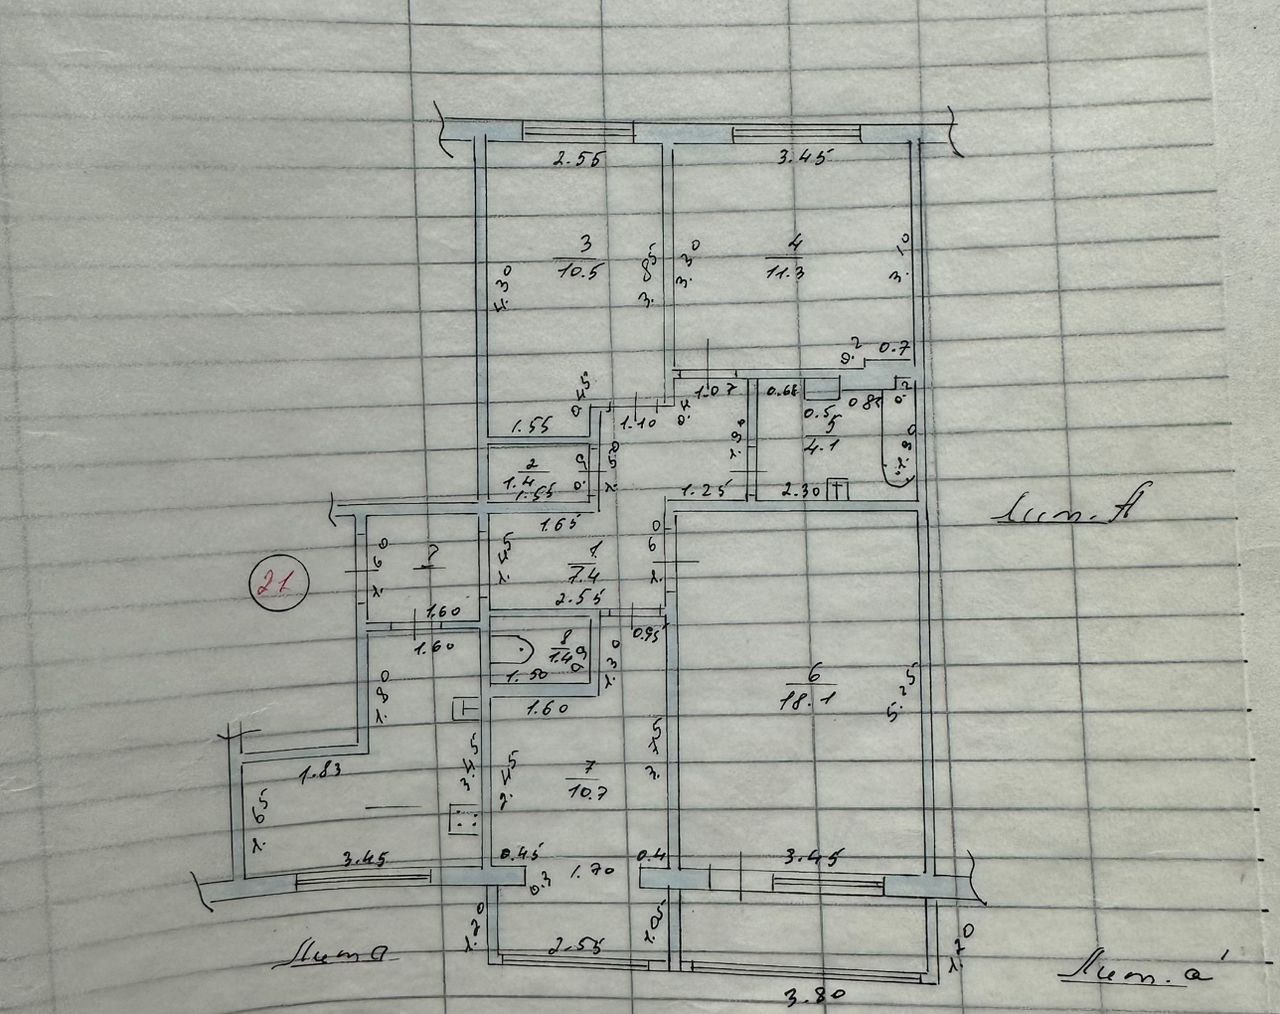 2.55
3.45
3
10.5
4.30
3.85
3.30
4
11.3
3.10
0.2
0.7
0.45
1.10
1.07
0.68
0.5
0.85
0.2
1.55
2
1.4
1.55
0.9
5
4.1
1.80
1.25
2.30
Лит. А
1.65
21
1.60
?
1.45
1
7.4
1.60
1.60
2.55
1.60
0.95
8
1.4
0.9
1.50
1.30
1.80
1.60
6
18.1
5.25
1.83
3.45
2.45
7
10.7
1.65
3.45
0.45
0.3
1.70
0.4
3.45
1.20
2.55
1.05
1.20
Лит а
Лит. а'
3.80